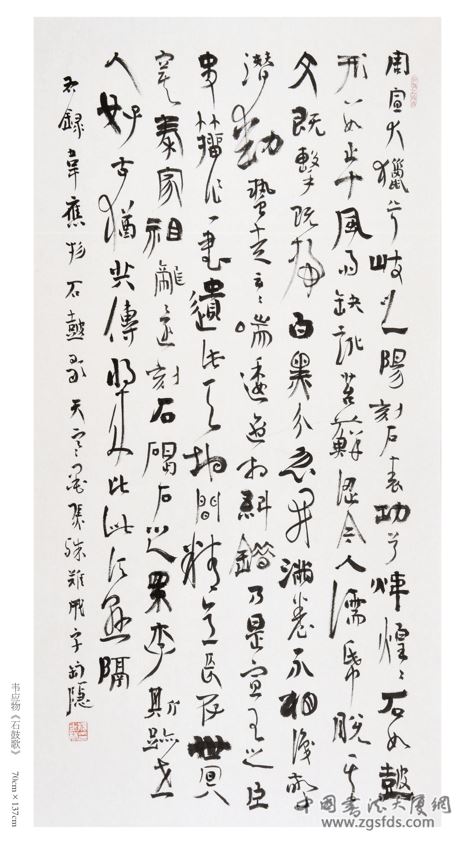 周宣大獵兮岐之陽刻石表功兮煒煌〻石如鼓
形如止十風雨缺訛苔蘚澀今人濡紙脫其
文既擊既掃白黑分忽開滿卷不相識驚
潛動蟄走云〻喘逶迤相糾錯乃是宣王之臣
史籀作一書遺此天地間精意長存世冥
寞秦家祖龍還刻石碣石之罘李斯跡世
人好古猶共傳持來比此殊懸隔
右錄韋應物石鼓歌天
韦应物《石鼓歌》 70cm×137cm
中国书法大厦網
www.zgsfds.com